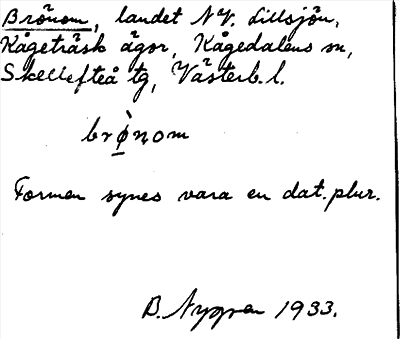 Brönom, landet NV. Lillsjön,
Kågeträsk ägor, Kågedalens sn,
Skellefteå tg, Västerb. l.
brǫ̀nom
Formen synes vara en dat. plur.
B. Nygren 1933.